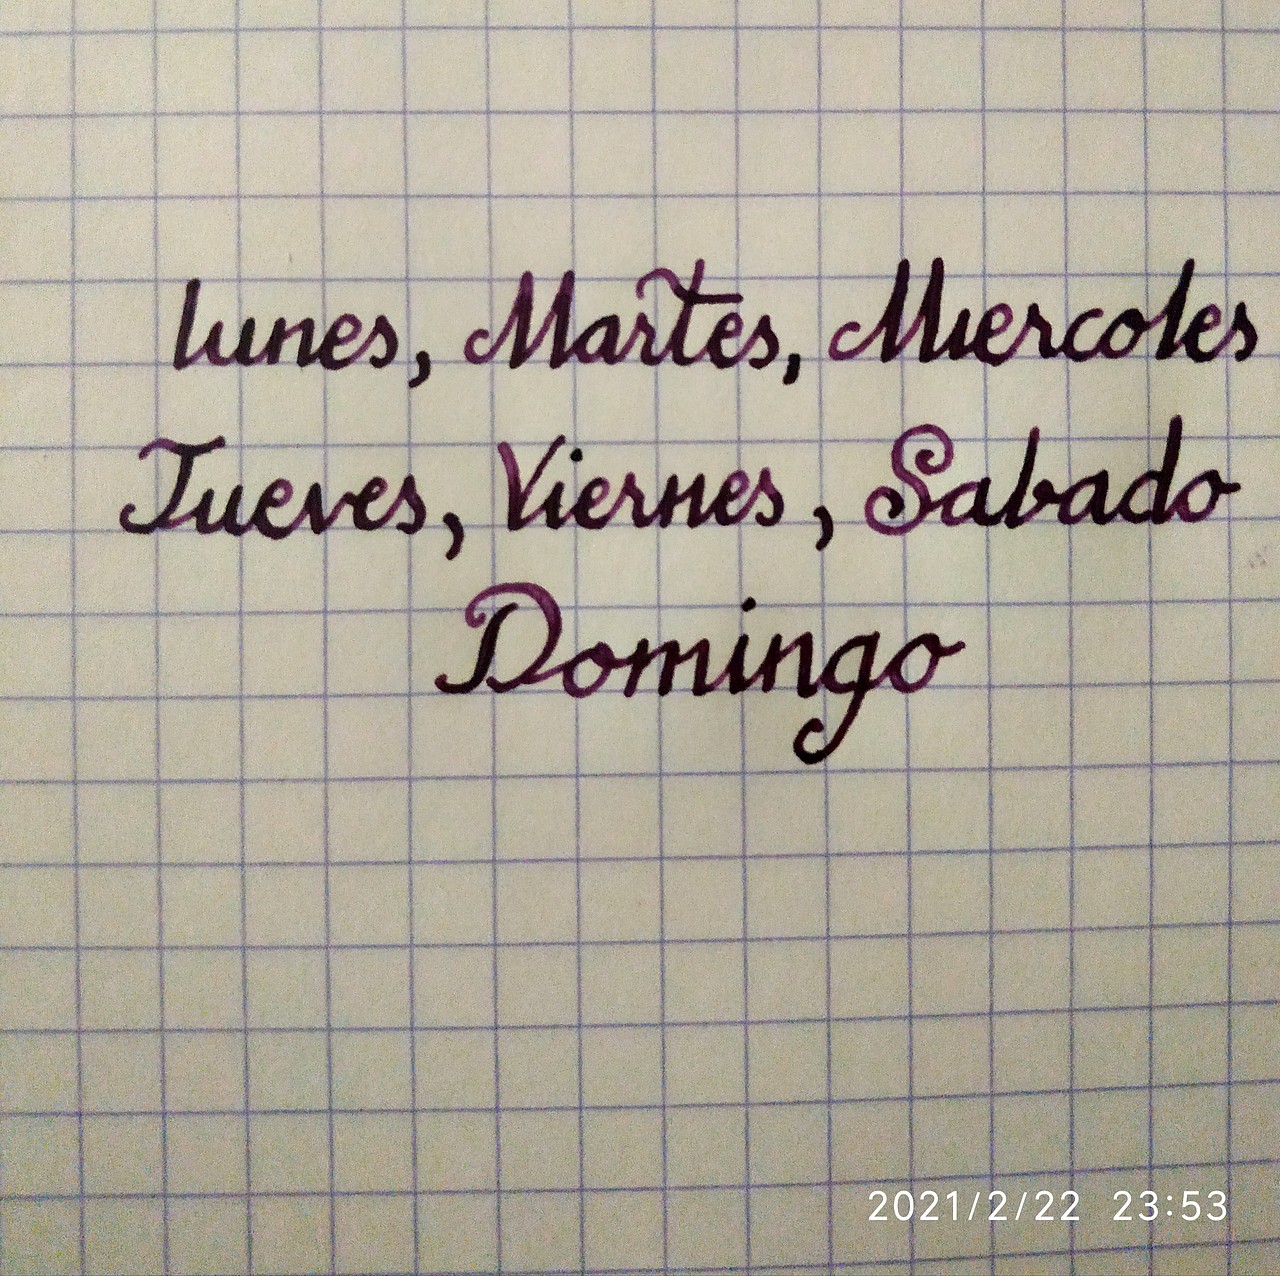 lunes, Martes, Miercoles
Jueves, Viernes, Sabado
Domingo
2021/2/22 23:53